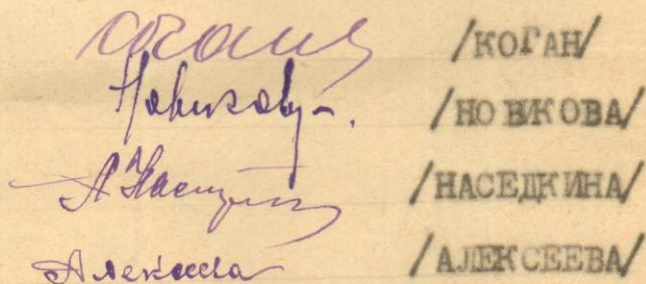 /КОГАН/
Новикова /НОВИКОВА/
А Наседкина /НАСЕДКИНА/
Алексеева /АЛЕКСЕЕВА/